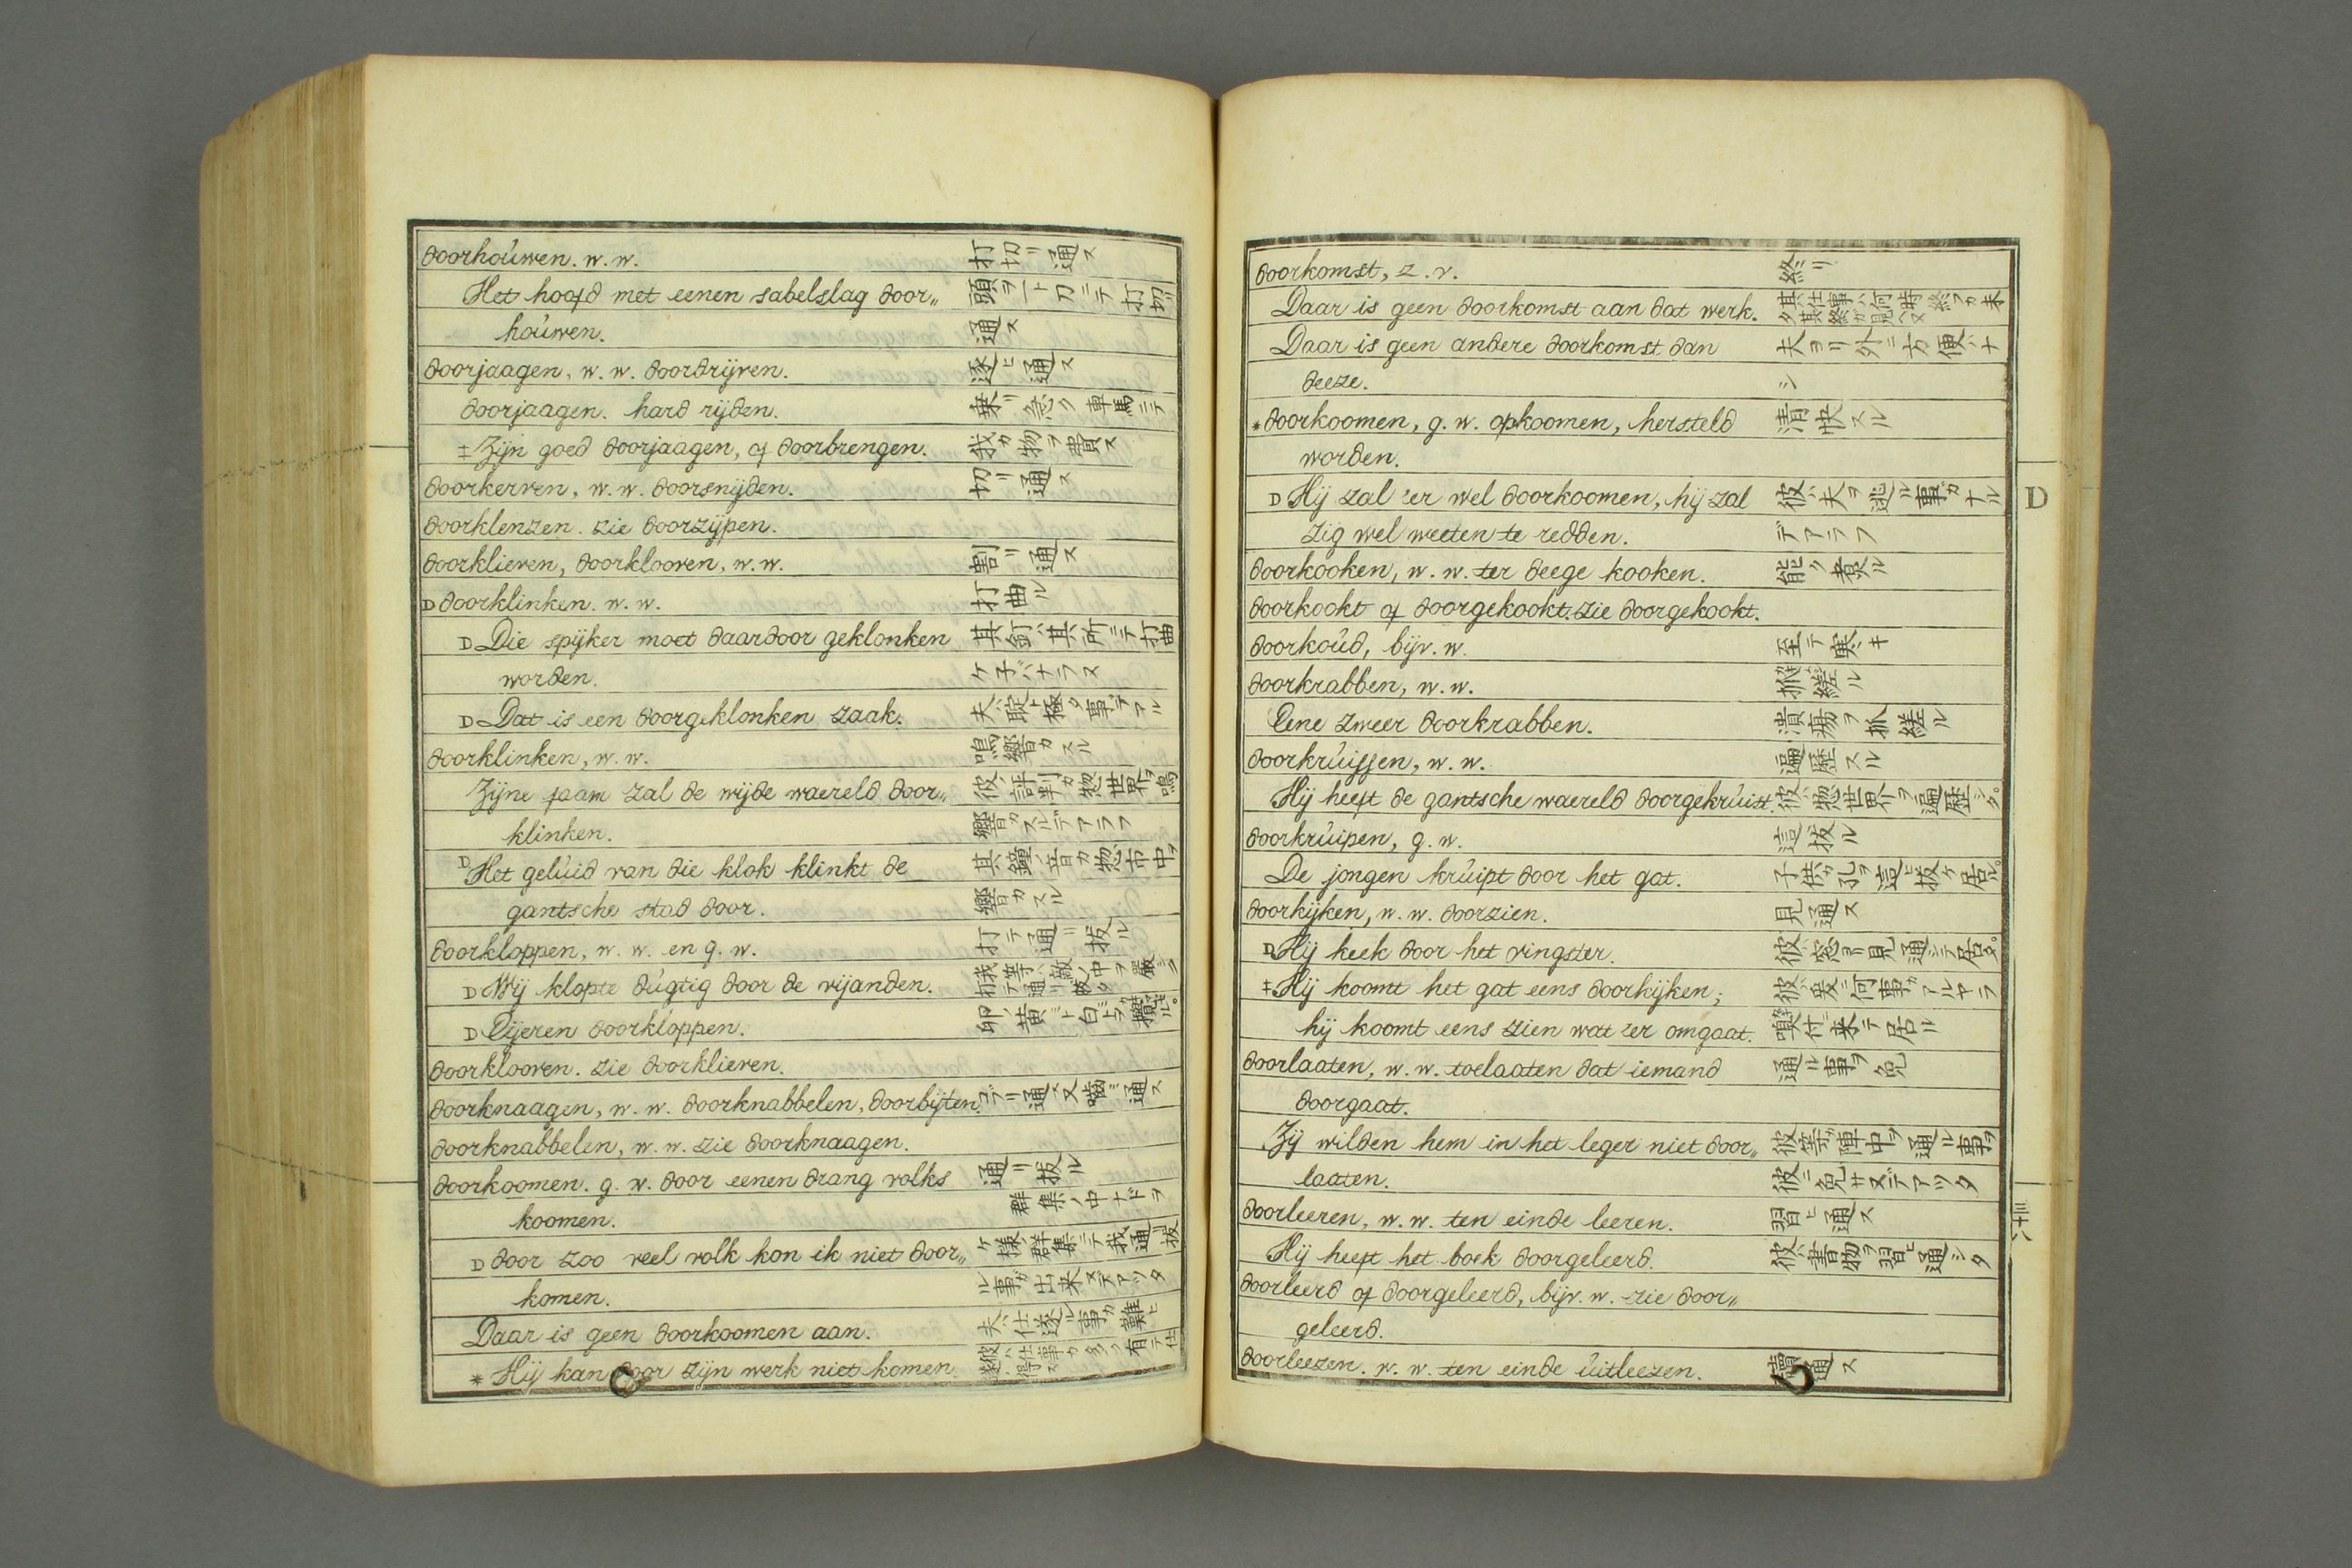 doorhoúwen. w. w. 打切リ通ス
Het hoofd met eenen sabelslag door„ 頭ヲ一ト刀ニテ打切リ
hoúwen. 通ス
doorjaagen, w. w. doordrijven. 逐ヒ通ス
doorjaagen. hard rijden. 乗リ急ク 車馬ニテ
‡ Zijn goed doorjaagen, of doorbrengen. 我カ物ヲ費ス
doorkerven, w. w. doorsnijden. 切リ通ス
doorklenzen. zie doorzijpen.
doorklieven, doorklooven, w. w. 割リ通ス
D doorklinken. w. w. 打曲ル
D Die spijker moet daardoor geklonken 其釘ハ其所ニテ打曲
worden. ケ子バナラヌ
D Dat is een doorgeklonken zaak. 夫ハ聢ト極タ事デアル
doorklinken, w. w. 鳴響カスル
Zijne faam zal de wijde waereld door„ 彼ノ評判カ惣世界ヲ鳴
klinken. 響カスルデアラフ
D Het gelúid van die klok klinkt de 其鐘ノ音カ惣市中ヲ
gantsche stad door. 響カスル
doorkloppen, w. w. en g. w. 打テ通リ拔ル
D Wij klopte dúgtig door de vijanden. 我等ハ敵ノ中ヲ厳シク打テ通リ拔ク
D Eijeren doorkloppen. 卵ノ黄ミト白ミトヲ攪ル
doorklooven. zie doorklieven.
doorknaagen, w. w. doorknabbelen, doorbijten. コブリ通ス又噛ミ通ス
doorknabbelen, w. w. zie doorknaagen.
doorkoomen. g. w. door eenen drang volks 通リ拔ル
koomen. 群集ノ中ナドヲ
D door zoo veel volk kon ik niet door„ ケ樣ノ群集ニテ我通リ拔
komen. ル事ガ出来ヌデアツタ
Daar is geen doorkoomen aan. 夫ハ仕遂ル事カ難ヒ
* Hij kan door zijn werk niet komen. 彼ハ仕事カ多ク有テ仕遂得ス
doorkomst, z. v. 終リ
Daar is geen doorkomst aan dat werk. 其仕事ハ何時終フカ未タ其終カ見ヘヌ
Daar is geen andere doorkomst dan 夫ヨリ外ニ方便ハナ
deeze. シ
* doorkoomen, g. w. opkoomen, hersteld 清快スル
worden.
D Hij zal 'er wel doorkoomen, hij zal 彼ハ夫ヲ逃ル事カナル
zig wel weeten te redden. デアラフ
doorkooken, w. w. ter deege kooken. 能ク煮ル
doorkookt of doorgekookt. zie doorgekookt.
doorkoúd, bijv. w. 至テ寒キ
doorkrabben, w. w. 抓縒ル
Eene zweer doorkrabben. 潰瘍ヲ抓縒ル
doorkrúissen, w. w. 遍歴スル
Hij heeft de gantsche waereld doorgekrúist. 彼ハ惣世界ヲ遍歴シタ。
doorkrúipen, g. w. 這拔ル
De jongen krúipt door het gat. 子供ガ孔ヲ這ヒ拔ケ居ル。
doorkijken, w. w. doorzien. 見通ス
D Hij keek door het vingster. 彼ハ窓ヨリ見通シテ居タ。
‡ Hij koomt het gat eens doorkijken; 彼ハ爰ニ何事ガアルヤラ
hij koomt eens zien wat 'er omgaat. 嗅付ニ来テ居ル
doorlaaten, w. w. toelaaten dat iemand 通ル事ヲ免
doorgaat.
Zij wilden hem in het leger niet door„ 彼等ガ陣中ヲ通ル事ヲ
laaten. 彼ニ免サヌデアツタ
doorleeren, w. w. ten einde leeren. 習ヒ通ス
Hij heeft het boek doorgeleerd. 彼ハ書物ヲ習ヒ通シタ
doorleerd of doorgeleerd, bijv. w. zie door„
geleerd.
doorleezen. w. w. ten einde úitleezen. 讀通ス
D
三十八